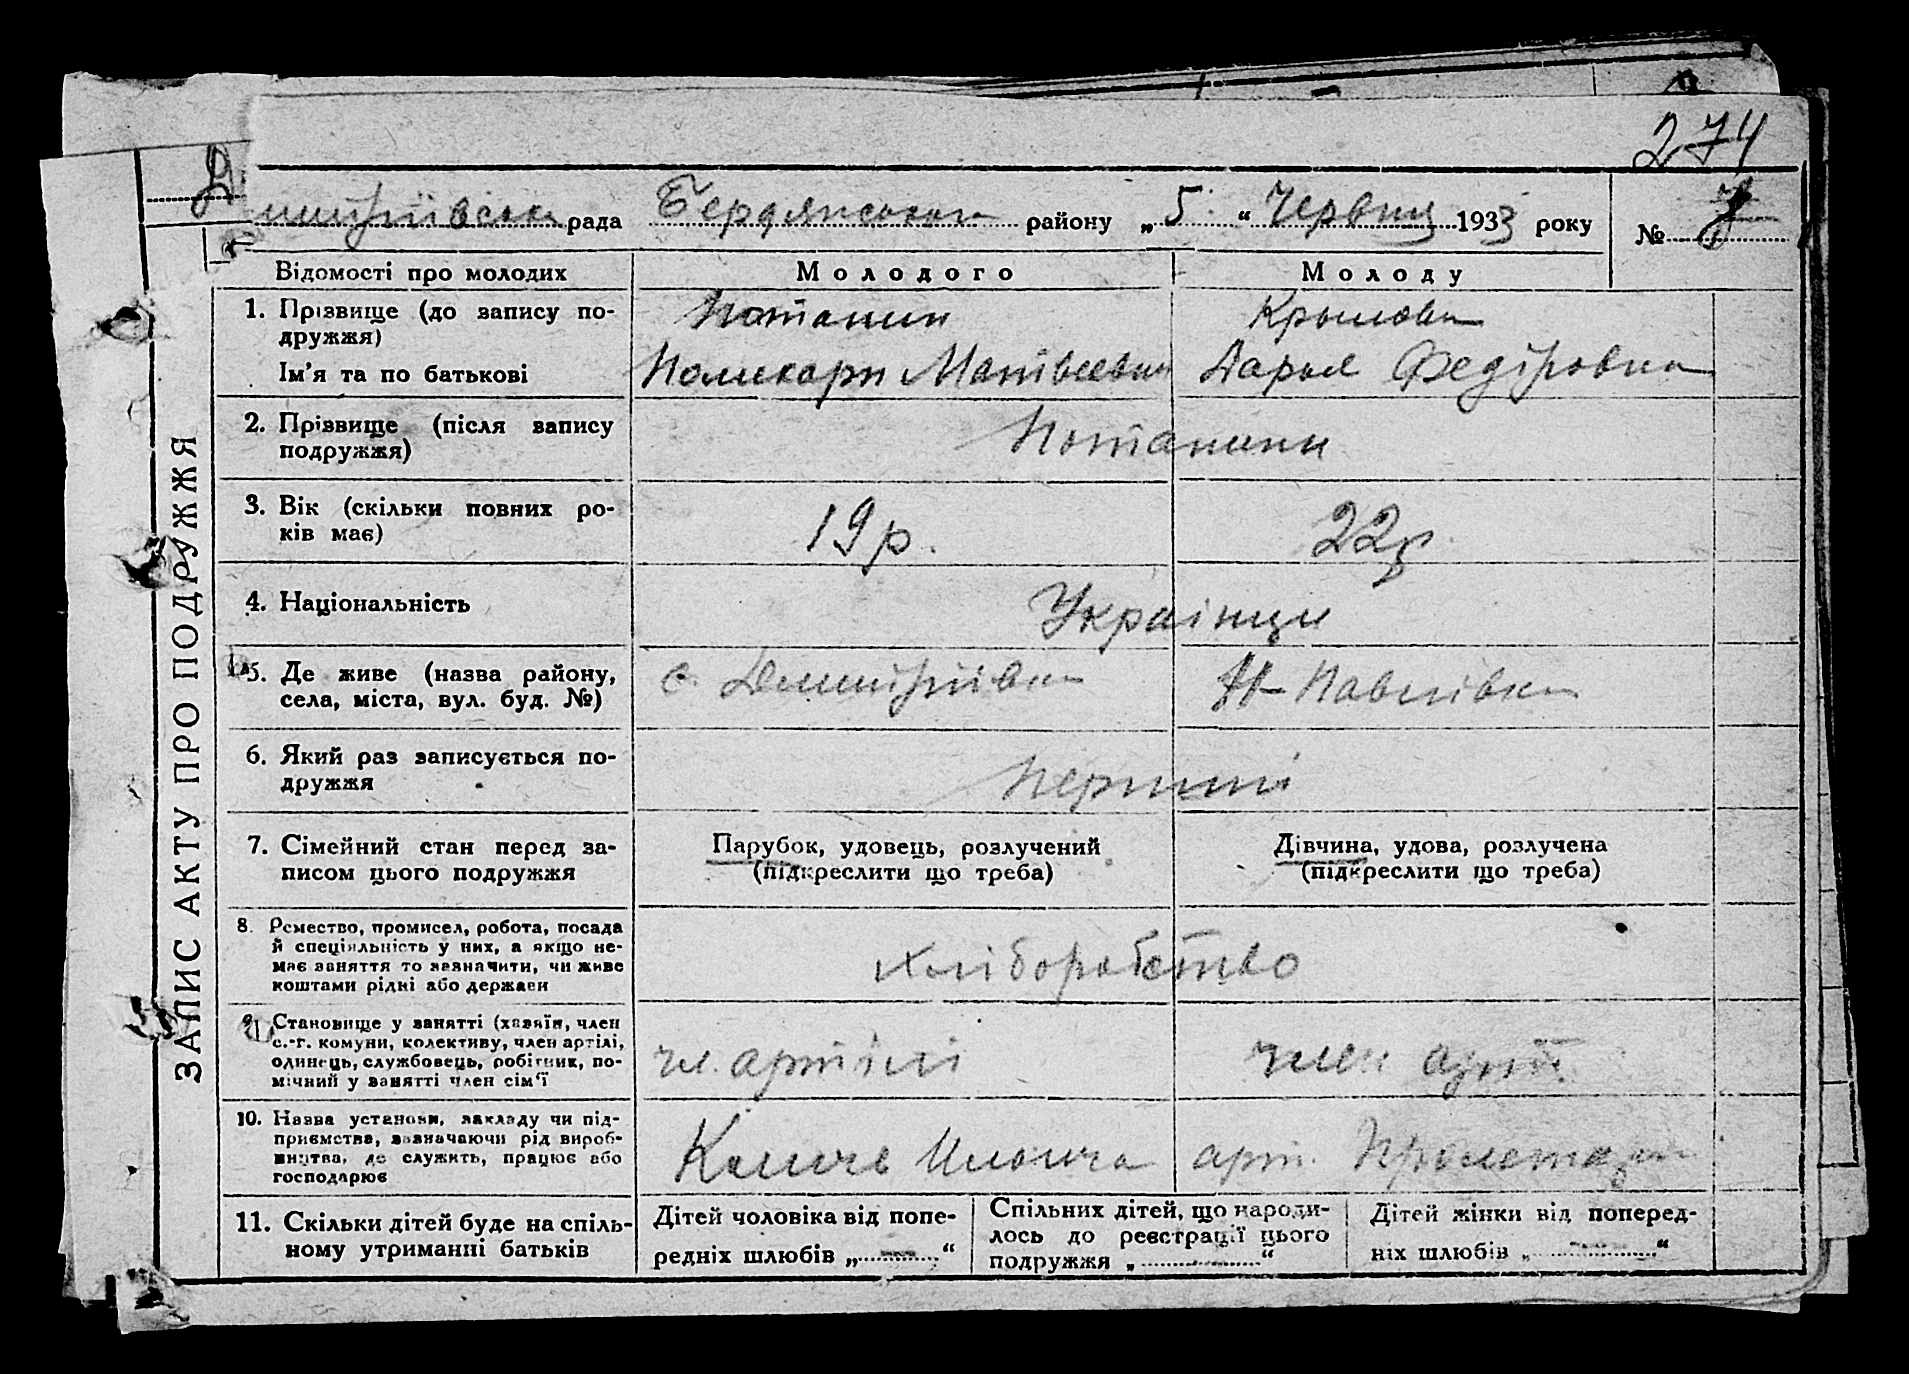 274
Дмитріївська рада Бердянського району „5“ Червня 1933 року № 7
ЗАПИС АКТУ ПРО ПОДРУЖЖЯ
Відомості про молодих Молодого Молоду
1. Прізвище (до запису по-
дружжя)
Потанин Крымова
Ім'я та по батькові Поликарп Матвеевич Дарья Федіровна
2. Прізвище (після запису
подружжя)
Потанини
3. Вік (скільки повних ро-
ків має)
19 р. 22 р.
4. Національність Українци
5. Де живе (назва району,
села, міста, вул. буд. №)
с. Дмитріівка Н-Павлівка
6. Який раз записується по-
дружжя
Перший
7. Сімейний стан перед за-
писом цього подружжя
Парубок, удовець, розлучений
(підкреслити що треба)
Дівчина, удова, розлучена
(підкреслити що треба)
8. Ремество, промисел, робота, посада
й спеціяльність у них, а якщо не-
має заняття то зазначити, чи живе
коштами рідні або держави
хліборобство
9. Становище у занятті (хазяїн, член
с.-г. комуни, колективу, член артілі,
одинець, службовець, робітник, по-
мічний у занятті член сім'ї
чл. артілі член арт.
10. Назва установи, закладу чи під-
приємства, зазначаючи рід вироб-
ництва, де служить, працює або
господарює
Ілліча арт. Пролетар
11. Скільки дітей буде на спіль-
ному утриманні батьків
Дітей чоловіка від попе-
редніх шлюбів „ — “
Спільних дітей, що народи-
лось до реєстрації цього
подружжя „ “
Дітей жінки від поперед-
ніх шлюбів „ — “